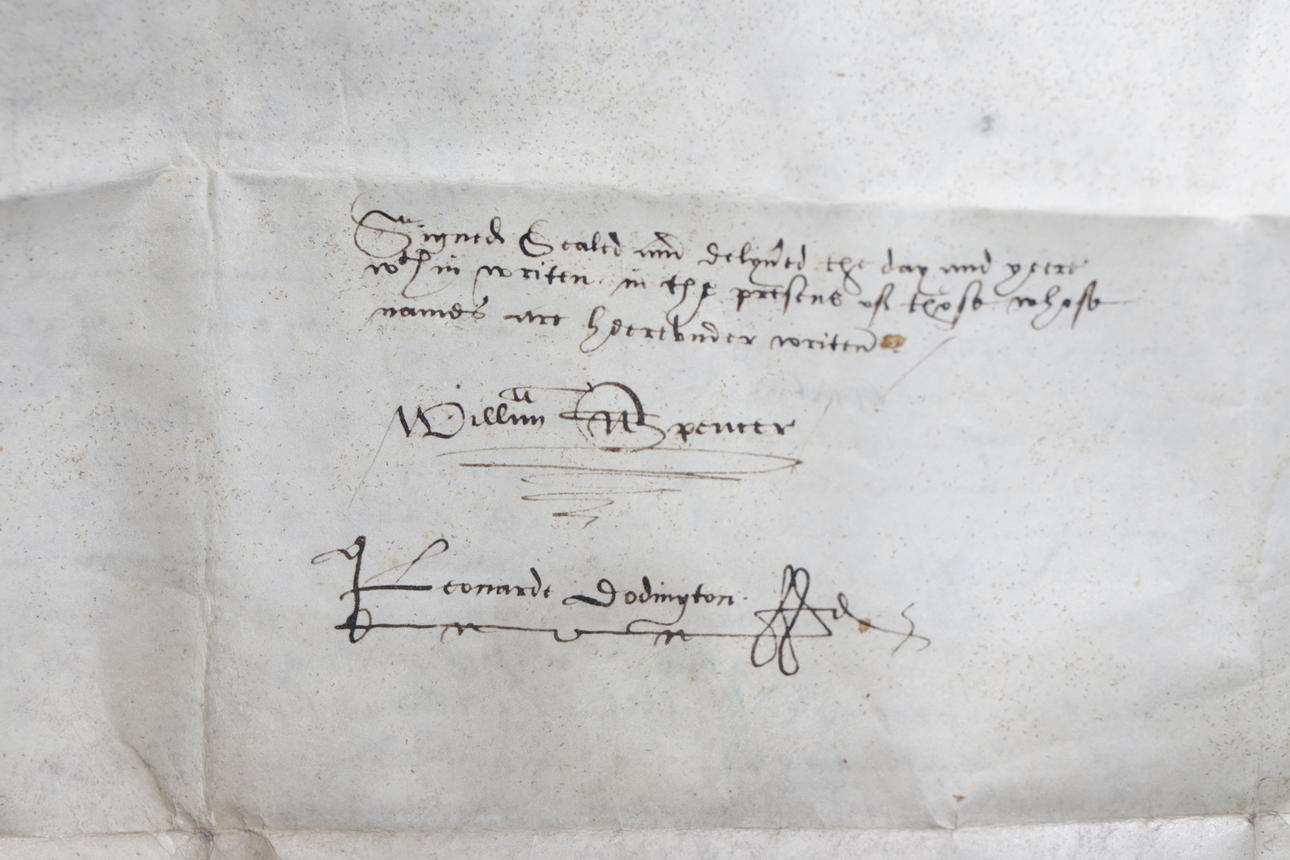 Signed Sealed and delyu'ed the day and yeere
wthin writen in the presens of those whose
names are heerevnder writen
Willim Spencer
Leonarde Dodington